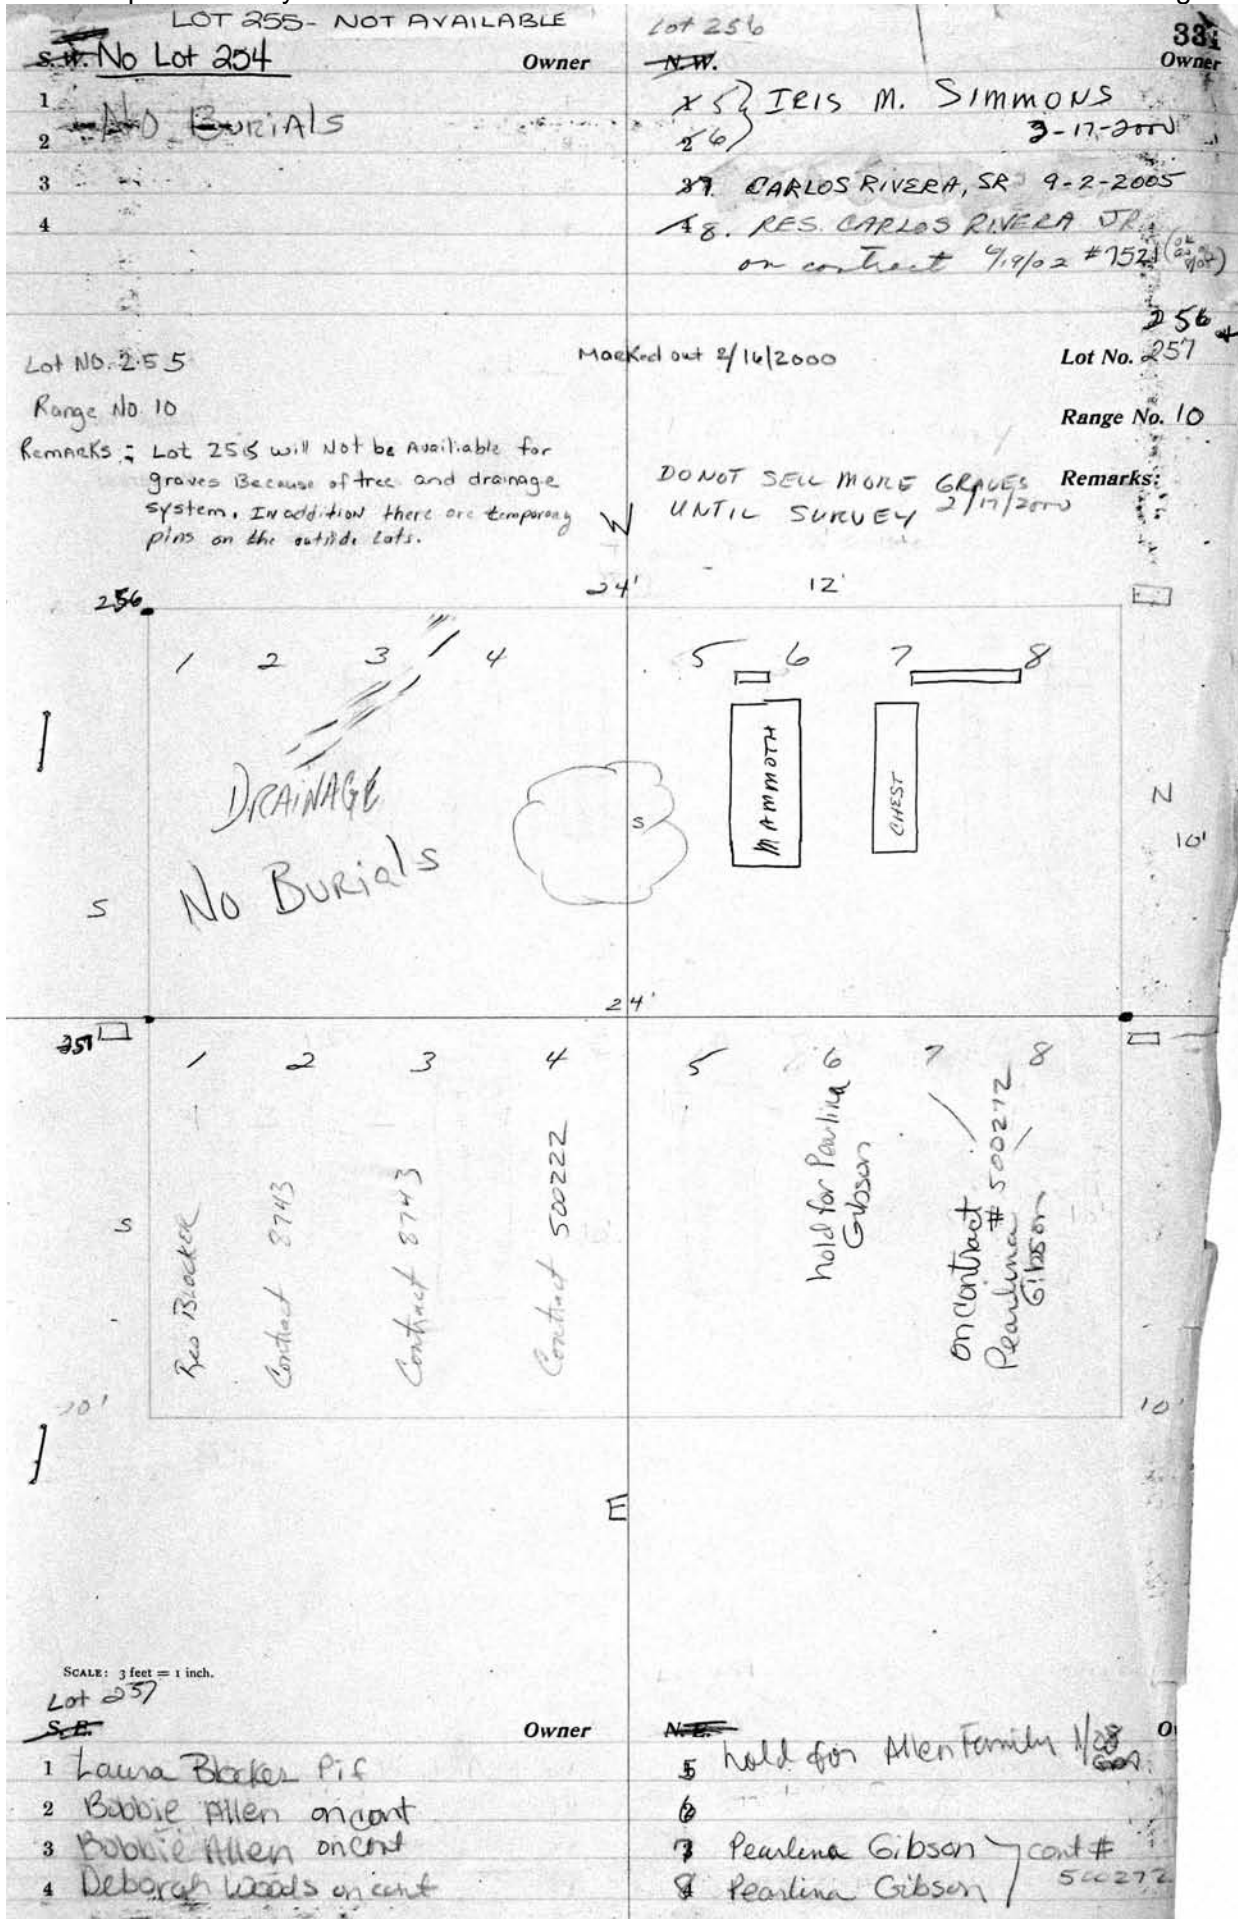 LOT 255- NOT AVAILABLE
S.W. No Lot 254 Owner
1
2 NO BURIALS
3
4
Lot 256
33
N.W. Owner
5 } IRIS M. SIMMONS
2 6 3-17-2000
37. CARLOS RIVERA, SR 9-2-2005
48. RES. CARLOS RIVERA JR
on contract 4/19/02 #7521
Lot No. 255
Range No. 10
Remarks: Lot 255 will Not be Availiable for
graves Because of tree and drainage
system. In addition there are temporary
pins on the outside Lots.
Marked out 2/16/2000
256 +
Lot No. 257
Range No. 10
Remarks:
DO NOT SELL MORE GRAVES
UNTIL SURVEY 2/17/2000
W
24' 12'
256
1 2 3 4 5 6 7 8
DRAINAGE
No Burials
S
S
MAMMOTH
CHEST
N
10'
24'
257
1 2 3 4 5 6 7 8
S
Res Blocker
Contract 8743
Contract 8743
Contract 500222
hold for Pearlina
Gibson
on contract
Pearlina # 500272
Gibson
10' 10'
E
SCALE: 3 feet = 1 inch.
Lot 257
S.E. Owner
1 Laura Blocker Pif
2 Bobbie Allen on cont
3 Bobbie Allen on cont
4 Deborah Woods on cont
N.E.
5 hold for Allen Family 1/28
6
7 Pearlena Gibson } cont #
8 Pearlina Gibson 500272